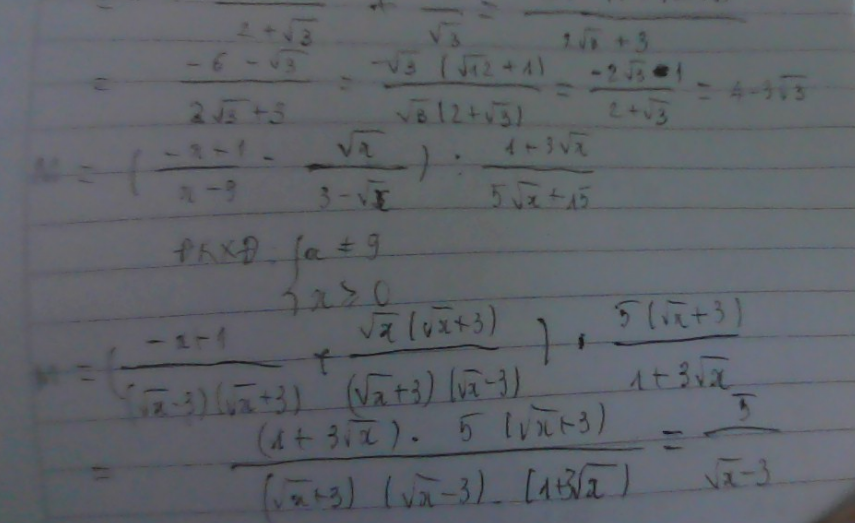 = 2 + √3 √3 = 2√3 + 3
= (-6 - √3)/(2√3 + 3) = (-√3 (√12 + 1))/(√3 (2 + √3)) = (-2√3 - 1)/(2 + √3) = 4 - 3√3
= ((-x - 1)/(x - 9) - √x/(3 - √x)) : (1 + 3√x)/(5√x + 15)
ĐKXĐ { x ≠ 9
x ≥ 0
= ((-x + 1)/((√x - 3)(√x + 3)) + (√x (√x + 3))/((√x + 3)(√x - 3))) . (5(√x + 3))/(1 + 3√x)
= ((1 + 3√x) . 5 (√x + 3))/((√x + 3) (√x - 3) . (1 + 3√x)) = 5/(√x - 3)